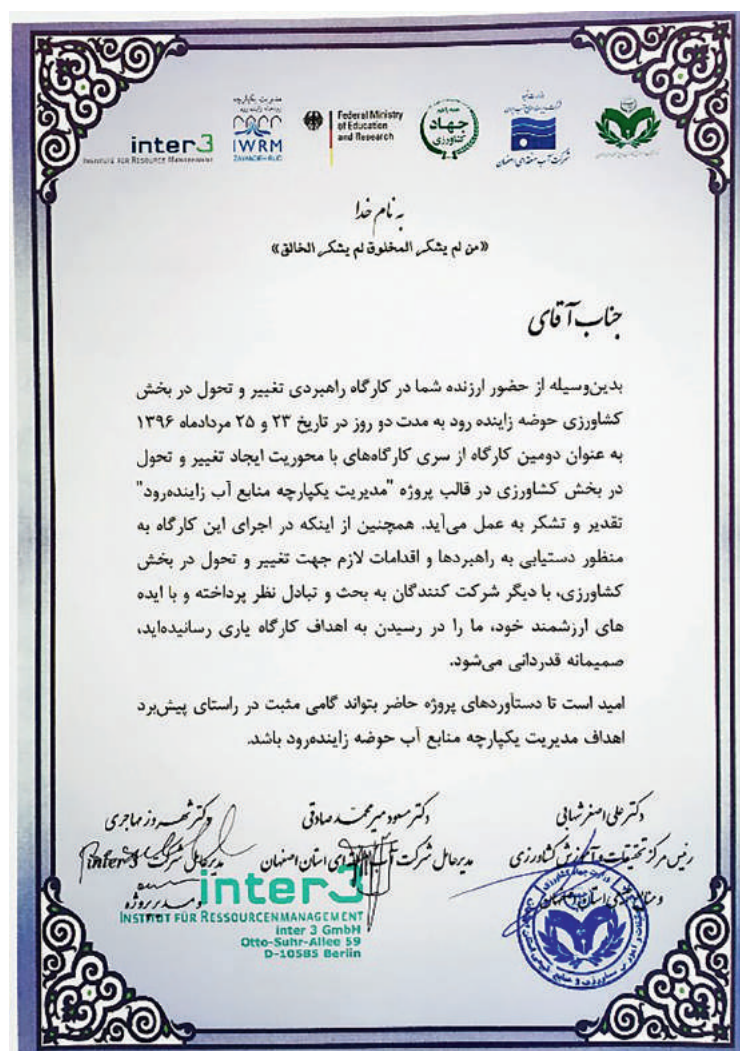 inter3
INSTITUTE FOR RESOURCE MANAGEMENT
مدیریت یکپارچه
IWRM
ZAYANDEH RUD
Federal Ministry
of Education
and Research
جهاد
کشاورزی
شرکت آب منطقه‌ای اصفهان
به نام خدا
«من لم یشکر المخلوق لم یشکر الخالق»
جناب آقای
بدین‌وسیله از حضور ارزنده شما در کارگاه راهبردی تغییر و تحول در بخش
کشاورزی حوضه زاینده رود به مدت دو روز در تاریخ ۲۳ و ۲۵ مردادماه ۱۳۹۶
به عنوان دومین کارگاه از سری کارگاه‌های با محوریت ایجاد تغییر و تحول
در بخش کشاورزی در قالب پروژه "مدیریت یکپارچه منابع آب زاینده‌رود"
تقدیر و تشکر به عمل می‌آید. همچنین از اینکه در اجرای این کارگاه به
منظور دستیابی به راهبردها و اقدامات لازم جهت تغییر و تحول در بخش
کشاورزی، با دیگر شرکت کنندگان به بحث و تبادل نظر پرداخته و با ایده
های ارزشمند خود، ما را در رسیدن به اهداف کارگاه یاری رسانیده‌اید،
صمیمانه قدردانی می‌شود.
امید است تا دستآوردهای پروژه حاضر بتواند گامی مثبت در راستای پیش‌برد
اهداف مدیریت یکپارچه منابع آب حوضه زاینده‌رود باشد.
دکتر علی اصغر شهابی
رئیس مرکز تحقیقات و آموزش کشاورزی
و منابع طبیعی استان اصفهان
دکتر مسعود میرمحمدصادقی
مدیرعامل شرکت آب منطقه‌ای استان اصفهان
دکتر شهروز مهاجری
مدیرعامل شرکت inter3
و مدیر پروژه
inter3
INSTITUT FÜR RESSOURCENMANAGEMENT
inter 3 GmbH
Otto-Suhr-Allee 59
D-10585 Berlin